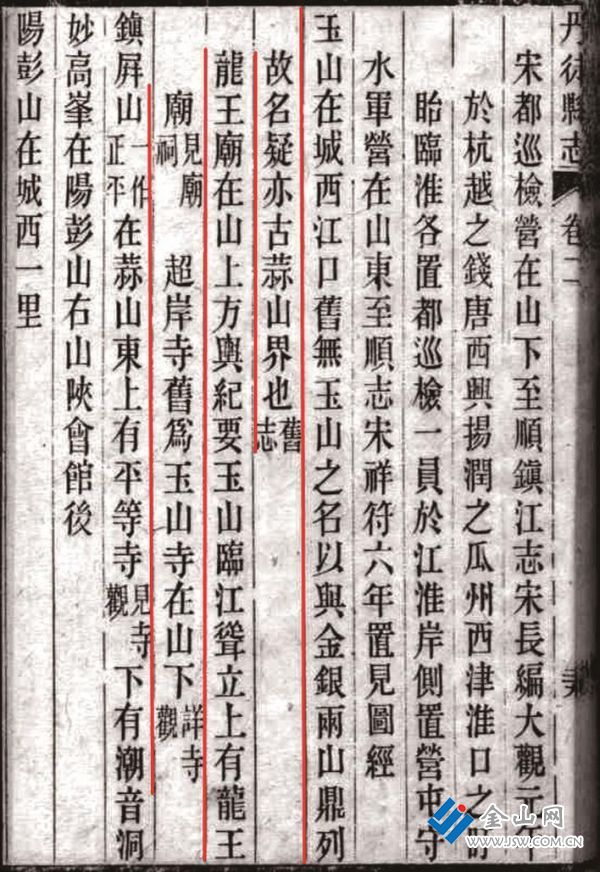 丹徒縣志 卷二
宋都巡檢營在山下至順鎮江志宋長編大觀元年
於杭越之錢唐西興揚潤之瓜州西津淮口之盱
眙臨淮各置都巡檢一員於江淮岸側置營屯守
水軍營在山東至順志宋祥符六年置見圖經
玉山在城西江口舊無玉山之名以與金銀兩山鼎列
故名疑亦古蒜山界也舊志
龍王廟在山上方輿紀要玉山臨江聳立上有龍王
廟見廟祠 超岸寺舊爲玉山寺在山下詳寺觀
鎮屏山一作正平在蒜山東上有平等寺見寺觀下有潮音洞
妙高峯在陽彭山右山陝會館後
陽彭山在城西一里
金山网
WWW.JSW.COM.CN